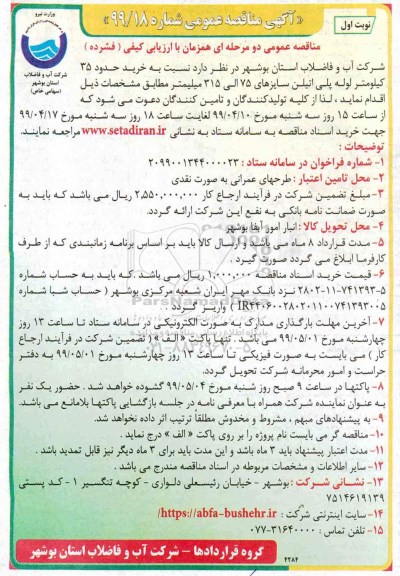 نوبت اول
« آگهی مناقصه عمومی شماره ۹۹/۱۸ »
وزارت نیرو
شرکت آب و فاضلاب
استان بوشهر
(سهامی خاص)
مناقصه عمومی دو مرحله ای همزمان با ارزیابی کیفی ( فشرده )
شرکت آب و فاضلاب استان بوشهر در نظر دارد نسبت به خرید حدود ۳۵
کیلومتر لوله پلی اتیلن سایزهای ۷۵ الی ۳۱۵ میلیمتر مطابق مشخصات ذیل
اقدام نماید ، لذا از کلیه تولیدکنندگان و تامین کنندگان دعوت می شود که
از ساعت ۱۵ روز سه شنبه مورخ ۹۹/۰۴/۱۰ لغایت ساعت ۱۸ روز سه شنبه مورخ ۹۹/۰۴/۱۷
جهت خرید اسناد مناقصه به سامانه ستاد به نشانی www.setadiran.ir مراجعه نمایند.
توضیحات :
۱- شماره فراخوان در سامانه ستاد : ۲۰۹۹۰۰۱۳۴۴۰۰۰۰۲۳
۲- محل تامین اعتبار : طرحهای عمرانی به صورت نقدی
۳- مبلغ تضمین شرکت در فرآیند ارجاع کار ۲,۵۵۰,۰۰۰,۰۰۰ ریال می باشد که باید به
صورت ضمانت نامه بانکی به نفع این شرکت ارائه گردد.
۴- محل تحویل کالا : انبار امور آبفا بوشهر
۵- مدت قرارداد ۸ ماه می باشد و ارسال کالا باید بر اساس برنامه زمانبندی که از طرف
کارفرما ابلاغ می گردد صورت گیرد .
۶- قیمت خرید اسناد مناقصه ۱,۰۰۰,۰۰۰ ریال می باشد .که باید به حساب شماره
۲۸۰۲-۱۱-۷۴۱۳۹۳-۵ نزد بانک مهر ایران شعبه مرکزی بوشهر ( حساب شبا شماره
IR۴۴۰۶۰۰۲۸۰۲۰۱۱۰۰۷۴۱۳۹۳۰۰۵ ) واریز گردد .
۷- آخرین مهلت بارگذاری مدارک به صورت الکترونیکی در سامانه ستاد تا ساعت ۱۳ روز
چهارشنبه مورخ ۹۹/۰۵/۰۱ می باشد . تنها پاکت « الف » ( تضمین شرکت در فرآیند ارجاع
کار ) می بایست به صورت فیزیکی تا ساعت ۱۳ روز چهارشنبه مورخ ۹۹/۰۵/۰۱ به دفتر
حراست و امور محرمانه شرکت تحویل گردد.
۸- پاکتها در ساعت ۹ صبح روز شنبه مورخ ۹۹/۰۵/۰۴ گشوده خواهد شد . حضور یک نفر
به عنوان نماینده شرکت همراه با معرفی نامه در جلسه بازگشایی پاکتها بلامانع می باشد.
۹- به پیشنهادهای مبهم ، مشروط و مخدوش مطلقاً ترتیب اثر داده نخواهد شد.
۱۰- مناقصه گر می بایست نام پروژه را بر روی پاکت « الف » درج نماید .
۱۱- مدت اعتبار پیشنهاد باید ۳ ماه باشد و این مدت باید برای ۳ ماه دیگر نیز قابل تمدید باشد .
۱۲- سایر اطلاعات و مشخصات مربوطه در اسناد مناقصه مندرج می باشد .
۱۳- نشانی شرکت : بوشهر - خیابان رئیسعلی دلواری - کوچه تنگسیر ۱ - کد پستی
۷۵۱۴۶۱۹۱۳۹
۱۴- سایت اینترنتی شرکت : https://abfa-bushehr.ir/
۱۵- تلفن تماس : ۳۱۶۴۰۰۰۰-۰۷۷
گروه قراردادها – شرکت آب و فاضلاب استان بوشهر
۴۲۸۴